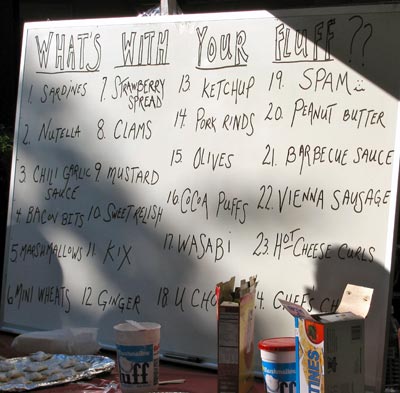 WHAT'S WITH YOUR FLUFF??
1. SARDINES
2. NUTELLA
3 CHILI GARLIC
SAUCE
4 BACON BETS
5 MARSHMALLOWS
6 MINI WHEATS
7. STRAWBERRY
SPREAD
8. CLAMS
9 MUSTARD
10. SWEET RELISH
11. KIX
12. GINGER
13. KETCHUP
14 PORK RINDS
15. OLIVES
16 COCOA PUFFS
17. WASABI
18. U CHO
19. SPAM
20. PEANUT BUTTER
21. BARBECUE SAUCE
22. VIENNA SAUSAGE
23. HOT CHEESE CURLS
4.
uff
TINES